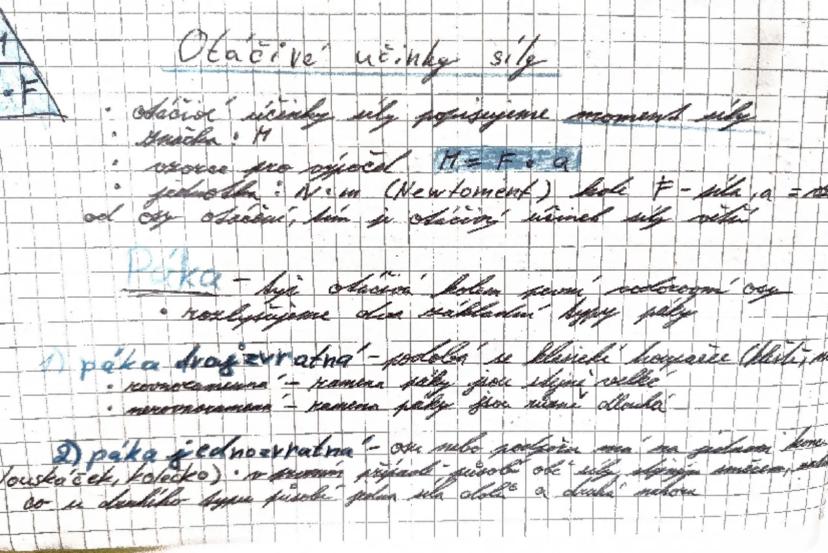 Otáčivé účinky síly
• otáčivé účinky síly popisujeme moment síly
• značka: M
• vzorec pro výpočet M = F • a
• jednotka: N•m (Newtoment) kde F - síla, a =
od osy otáčení, tím je otáčivý účinek síly větší
• F
Páka - tyč otáčivá kolem pevné vodorovné osy
• rozlišujeme dva základní typy páky
1) páka dvojzvratná - podobá se klasické houpačce (kleště,
• rovnoramenná - ramena páky jsou stejně velké
• nerovnoramená - ramena páky jsou různě dlouhá
2) páka jednozvratná - osu nebo podpěru má na jednom
louskáček, kolečko) • v prvním případě působí obě síly stejným směrem,
co u druhého typu působí jedna síla dolů a druhá nahoru